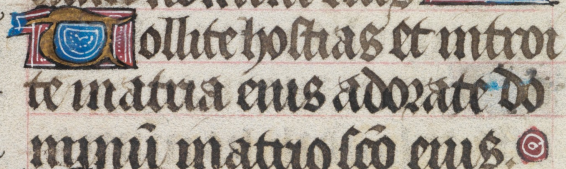 Tollite hostias et introi
te in atria eius adorate do
minū in atrio sc̄o eius.